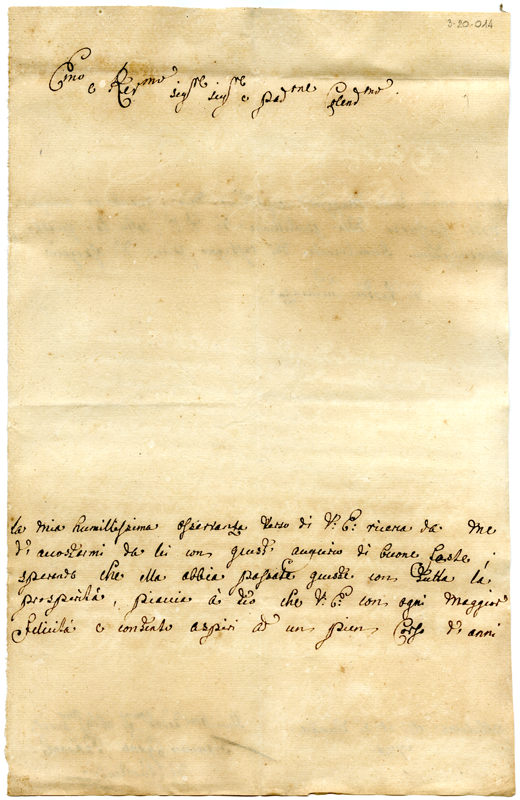 3-20-014
Emo e Revmo sigre sigre e padrne Colendmo.
la mia humilissima osservanza verso di V: E: ricerca da me
di accostarmi da lei con questo augurio di buone feste;
sperando che ella abbia passate queste con tutta la
prosperità, piaccia à Dio che V: E: con ogni maggior
felicità e contento aspiri ad un pien corso di anni